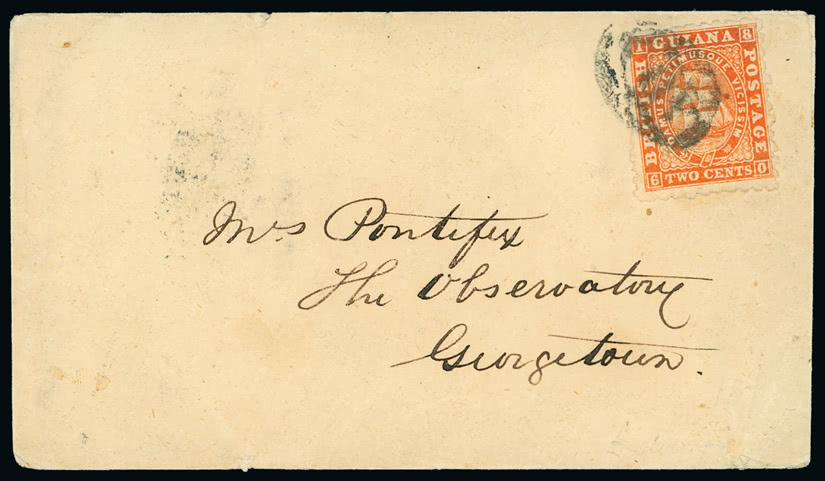 1 GUIANA 8
BRITISH
POSTAGE
DAMUS PETIMUSQUE VICISSIM
6 TWO CENTS 0
Mrs Pontifex
The Observatory
Georgetown.